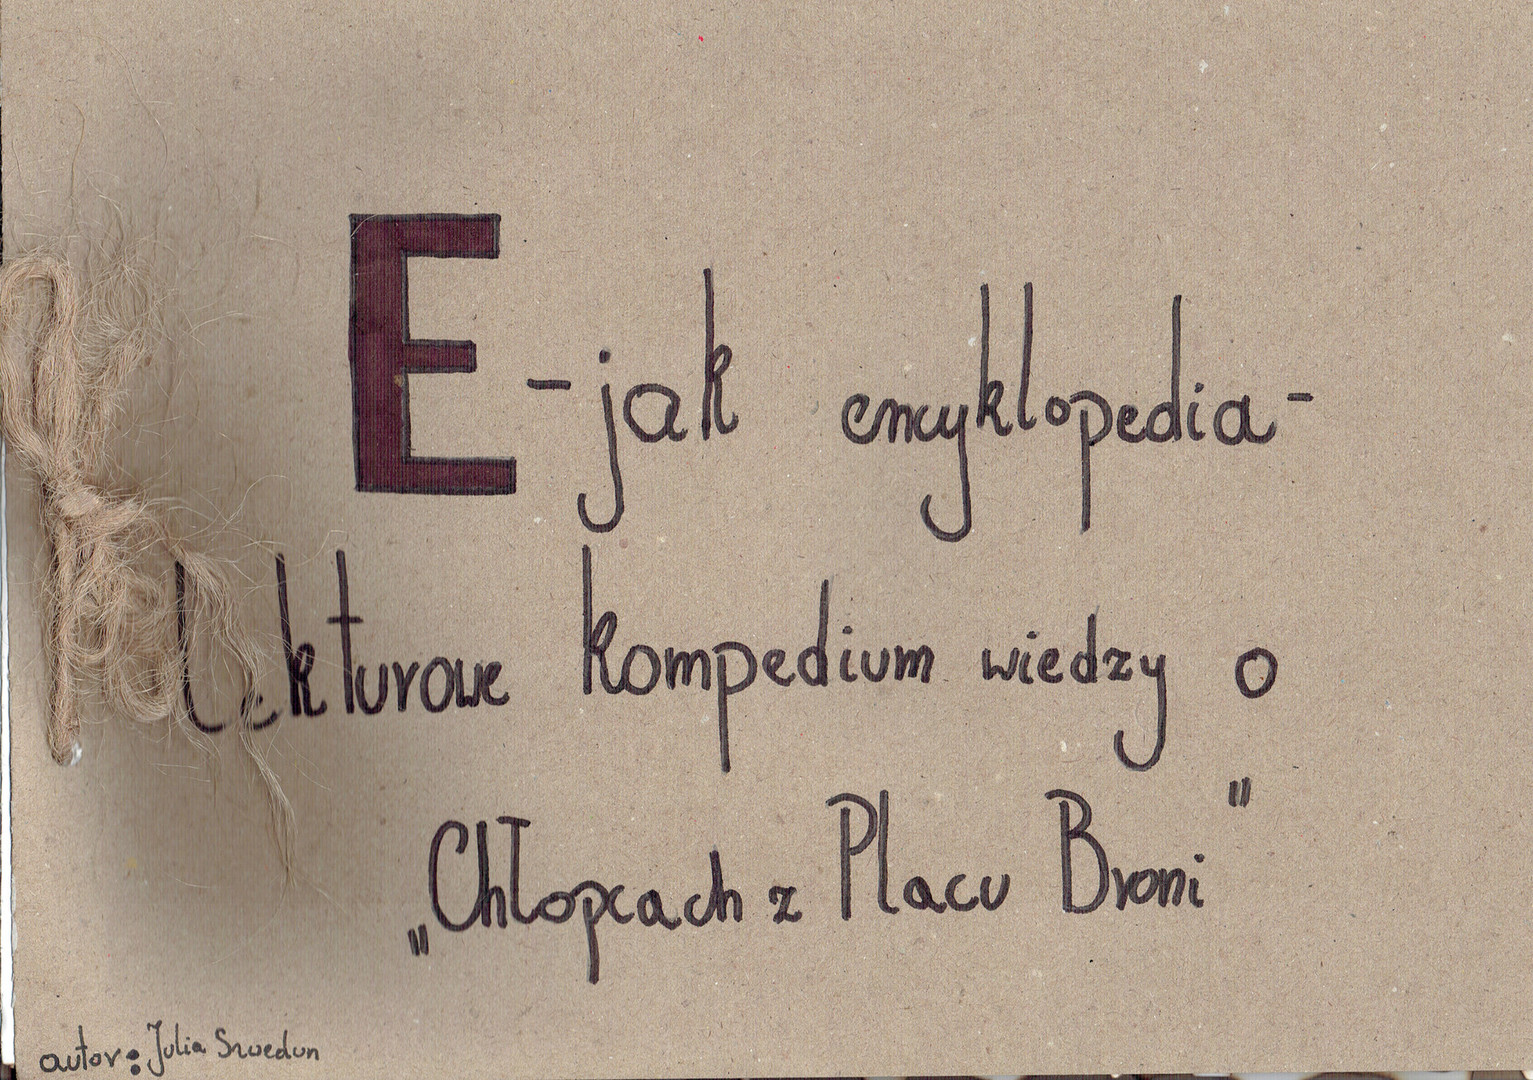 E - jak encyklopedia -
Lekturowe kompedium wiedzy o
„Chłopcach z Placu Broni"
autor: Julia Szwedun